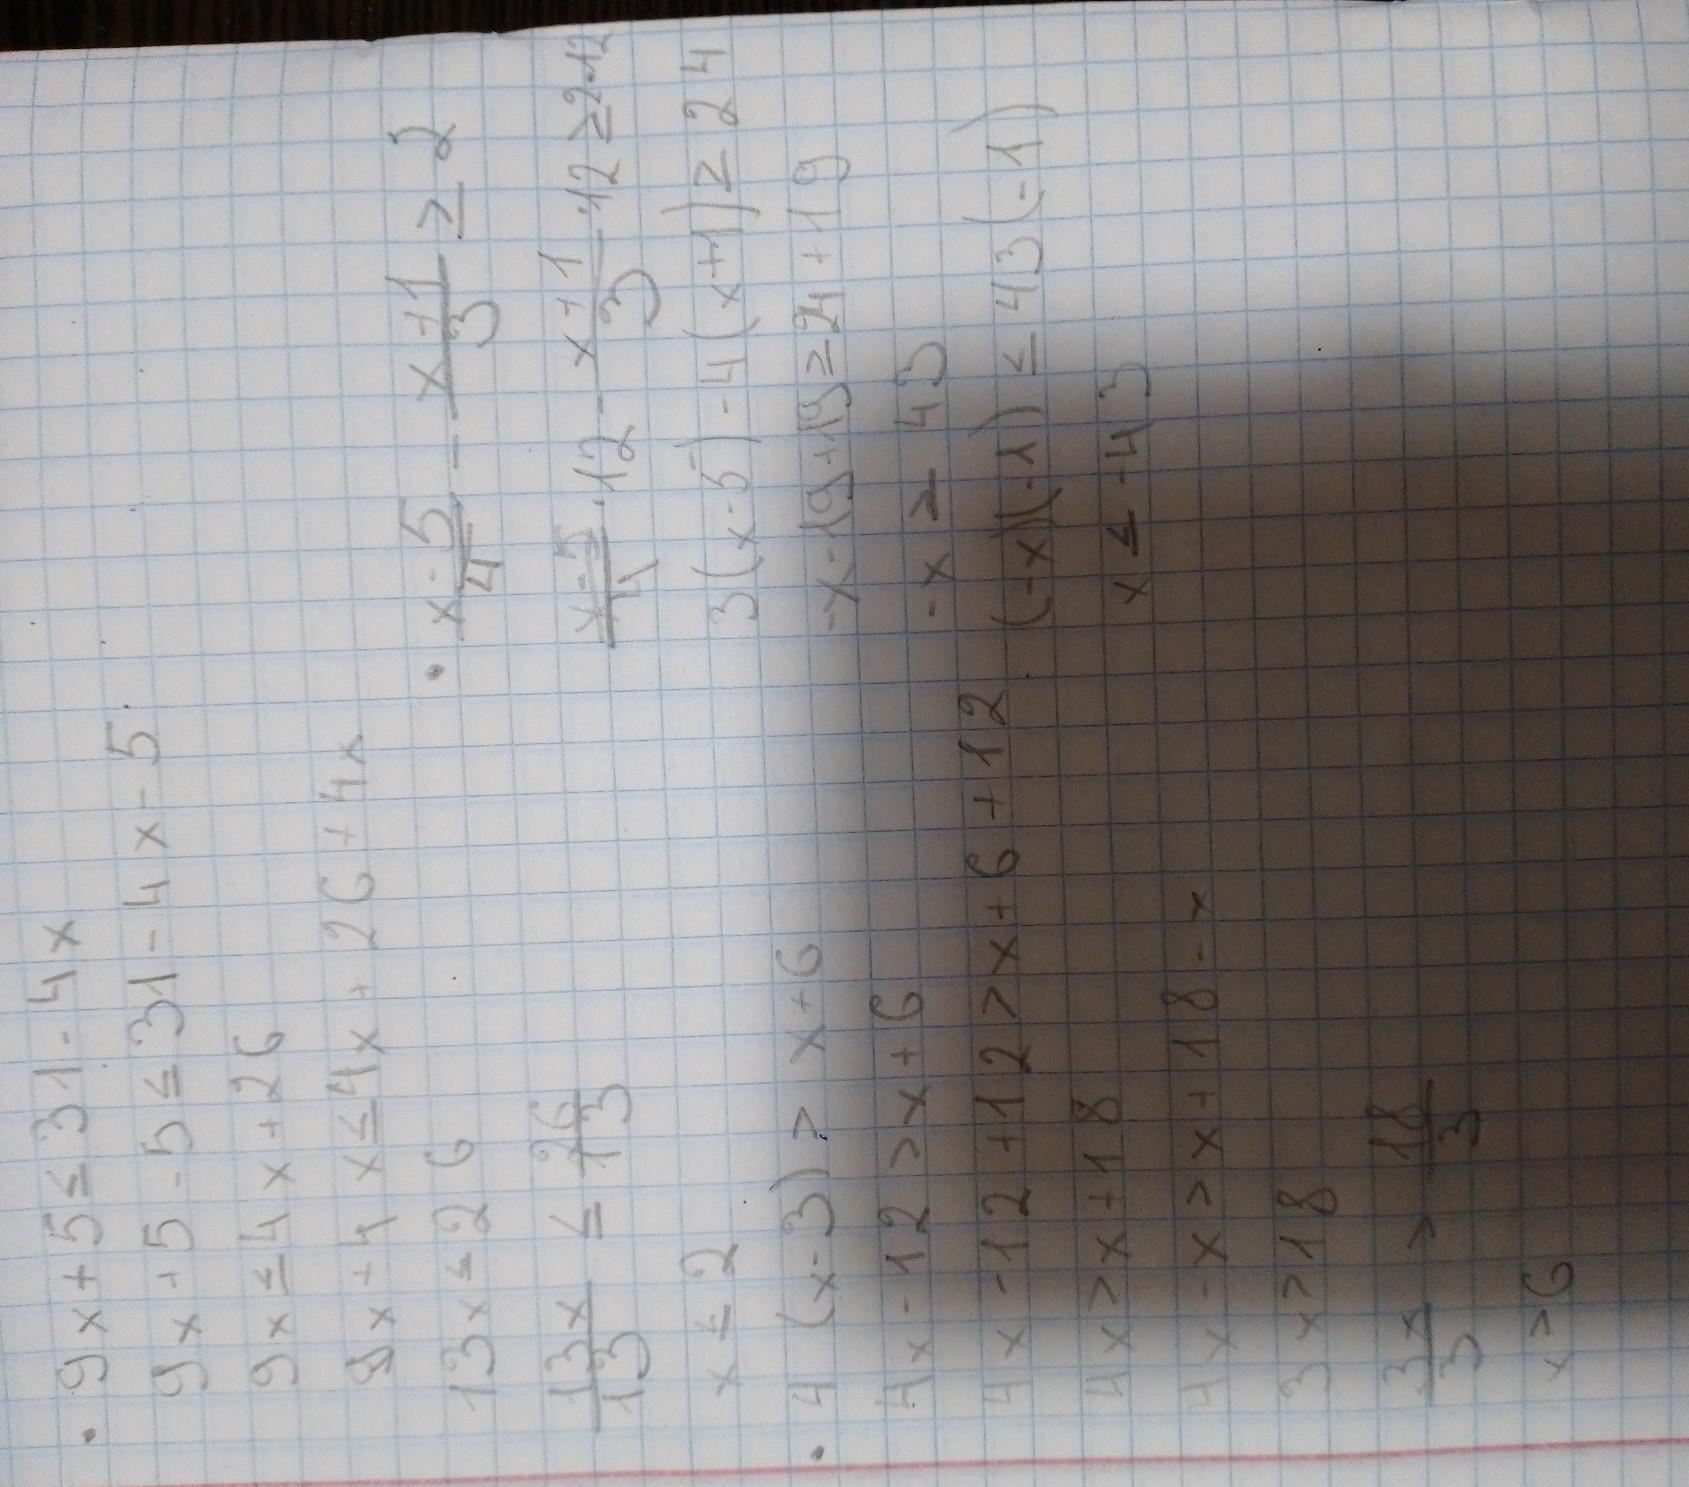 • 9x+5≤31-4x
9x+5-5≤31-4x-5
9x≤4x+26
9x+4x≤4x+26+4x
13x≤26
13x/13 ≤ 26/13
x≤2
• 4(x-3)>x+6
4x-12>x+6
4x-12+12>x+6+12
4x>x+18
4x-x>x+18-x
3x>18
3x/3 > 18/3
x>6
• x-5/4 - x+1/3 ≥ 2
x-5/4 ·12 - x+1/3 ·12≥2·12
3(x-5)-4(x+1)≥24
-x-19+19≥24+19
-x≥43
(-x)(-1)≤43(-1)
x≤-43